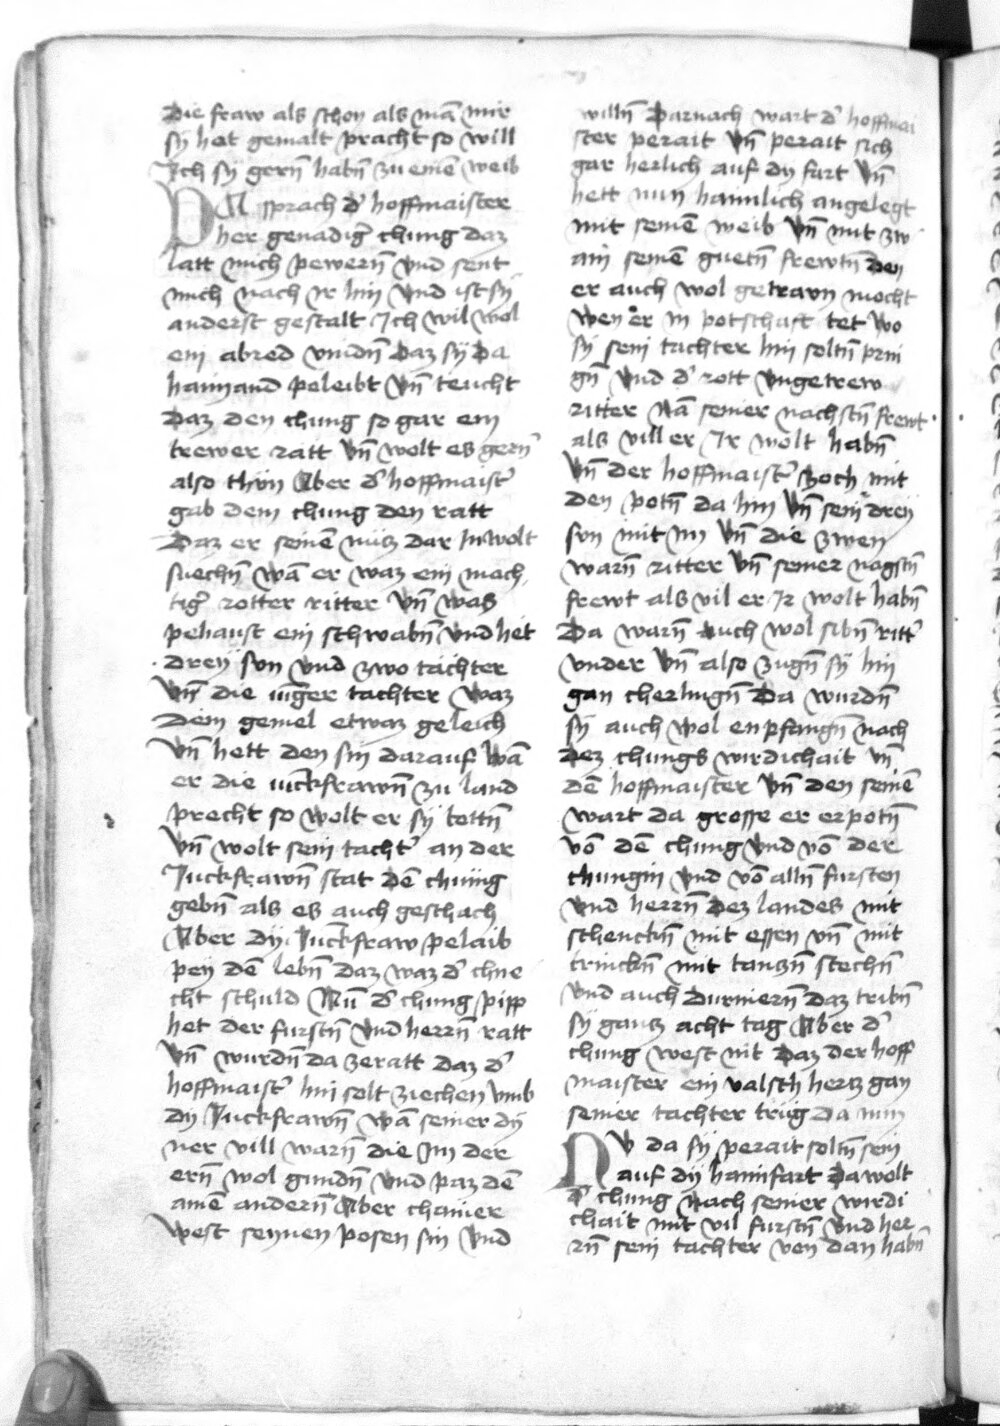 die fraw als schon als mā mir
sÿ hat gemalt pracht so will
Ich sÿ gern̄ habn̄ zu eine͞ weib
DA sprach d' hoffmaister
her genadig' chung daz
latt mich pewern̄ vnd sent
mich nach ir hin vnd ist sÿ
anderst gestalt Ich wil wol
ein abred vindn̄ daz sÿ da
haimand peleibt vn̄ teucht
daz den chung so gar ein
trewer ratt vn̄ wolt es gern̄
also thun Aber d' hoffmaist'
gab dem chung den ratt
Daz er seine͞ nucz dar In wolt
suechn̄ wā er waz ein mach
tig' rotter ritter vn̄ was
pehaust ein schwabn̄ vnd het
dreÿ sun vnd zwo tachter
vn̄ die iūger tachter waz
Dem gemel etwaz geleich
vn̄ hett den sin darauf wā
er die iūckfrawn̄ zu land
precht so wolt er sÿ tettn̄
vn̄ wolt sein tacht' an der
Juckfrawn̄ stat de͞ chung
gebn̄ als es auch geschach
Aber dÿ Juckfraw pelaib
peÿ de͞ lebn̄ daz waz d' chne
cht schuld Nu͞ d' chung pipp
het der furstn̄ vnd herrn̄ ratt
vn̄ wurdn̄ da ze ratt daz d'
hoffmaist' hin solt ziechen vmb
dÿ Juckfrawn̄ wā seiner dÿ
ner vill warn̄ die Im der
ern̄ wol gundn̄ vnd paz de͞
aine͞ andern̄ Aber chainer
west seynen posen sin vnd
willn̄ Darnach wart d' hoffmai
ster perait vn̄ perait sich
gar herlich auf dÿ fart vn̄
hett nun haimlich angelegt
mit seine͞ weib vn̄ mit zw
ain seine͞ guetn̄ frewtn̄ den
er auch wol getrawn mocht
wen er in potschaft tet wo
sÿ sein tachter hin soltn̄ prin
gn̄ vnd d' rott vngetrew
ritter nā seiner nachstn̄ frewt
als vill er Ir wolt habn̄
vn̄ der hoffmaist' zoch mit
den potn̄ da hin vn̄ sein dreÿ
sun mit im vn̄ die zwen
warn̄ ritter vn̄ seiner nagstn̄
frewt als vil er Ir wolt habn̄
Da warn̄ auch wol sibn̄ ritt'
vnder vn̄ also zugn̄ sÿ hin
gan cherlingn̄ Da wurdn̄
sÿ auch wol enpfangn̄ nach
dez chungs wirdichait vn̄
de͞ hoffmaister vn̄ den seine͞
wart da grosse er erpotn̄
vō de͞ chung vnd vō der
chungin vnd vō alln̄ fursten
vnd herrn̄ dez landes mit
schenckn̄ mit essen vn̄ mit
trinckn̄ mit tanczn̄ stechn̄
vnd auch durniern̄ daz tribn̄
sÿ gancz acht tag Aber d'
chung west nit daz der hoff
maister ein valsch hercz gan
seiner tachter trug da nun
NV da sÿ perait soltn̄ sein
auf dÿ haimfart Da wolt
d' chung nach seiner wirdi
chait mit vil furstn̄ vnd her
rn̄ sein tachter von dan habn̄